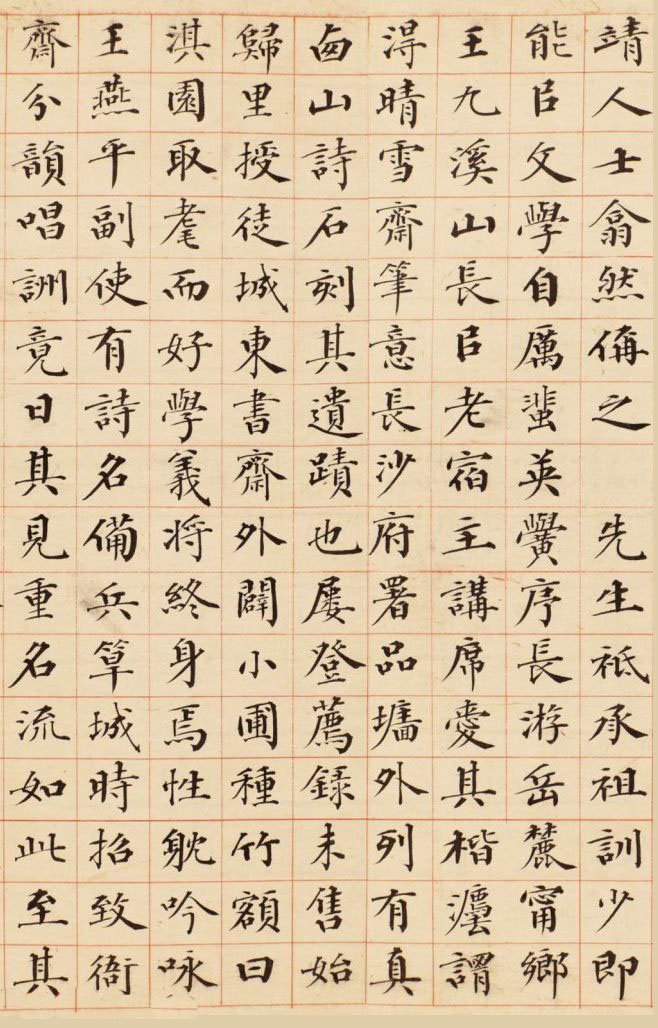 靖人士翕然偁之　先生祗承祖訓少即
能㠯文學自厲蜚英黌序長游岳麓甯鄉
王九溪山長㠯老宿主講席愛其楷灋謂
淂晴雪齋筆意長沙府署品墻外列有真
西山詩石刻其遺蹟也屡登薦錄未售始
歸里授徒城東書齋外闢小圃種竹額曰
淇園取耄而好學義將終身焉性躭吟咏
王燕平副使有詩名備兵筸城時招致衙
齋分韻唱詶竟日其見重名流如此至其